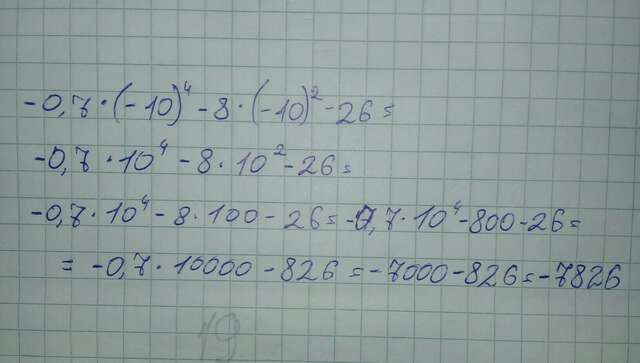 -0,7·(-10)⁴-8·(-10)²-26=
-0,7·10⁴-8·10²-26=
-0,7·10⁴-8·100-26=-0,7·10⁴-800-26=
=-0,7·10000-826=-7000-826=-7826
19